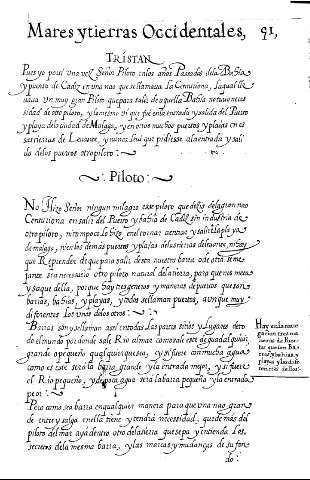 Mares y tierras Occidentales, 91,
TRISTAN
Pues yo passé una vez Señor Piloto en los años Passados dela Bahia
y puerto de Cadiz en una nao que se llamaua La Centuriona, la qual lle
uaua un muy gran Piloto que para salir de aquella Bahia no tuuo neces
sidad de otro piloto, y lo mesmo vi que fue en la entrada y salida del Puerto
y playa de la ciudad de Malaga, y en otros muchos puertos y playas en es
sas tierras de Leuante, y nunca que pidiesse a la entrada y sali
da delos puertos otro piloto:
Piloto:
No Hizo Señor ningun milagro esse piloto que dezis dela gran nao
Centuriona en salir del Puerto y bahia de Cadiz sin industria de
otro piloto, ni tampoco le hizo en el tornar a entrar y salir
de malaga, ni en los demas puertos y playas delas tierras de leuante,
que Reprender de que para salir desta nuestra barra o de otra seme
jante. Era necessario otro piloto natural dela tierra, para que nos meta
y saque della, porque hay tres generos y maneras de puertos que son
barras, bahias, y playas, y todos se llaman puertos, aunque muy
diferentes los unos delos otros:
Barras son y se llaman assi en todas las partes sitios y lugares dero
do el mundo por donde sale Rio al mar como sale este de guadalquiuir
grande o pequeño qualquiera que sea, y si fuere con mucha agua
como es este sera la barra grande y la entrada mejor, y si fuere
el Rio pequeño, y de poca agua sera la barra pequeña y la entrada
peor:
Pero como sea barra en qualquier manera para que una nao gran
de entre y salga en ella tiene y tendra necessidad, que de mas del
piloto del mar aya dentro otro dela tierra que sepa y entienda los
secretos dela mesma barra, y las marcas y mudanças de su fon
do:
Hay en la naue
gacion tres ma
neras de Puer
tos que son Ba
rras, y bahias, y
playas, y las dife
rencias de llos